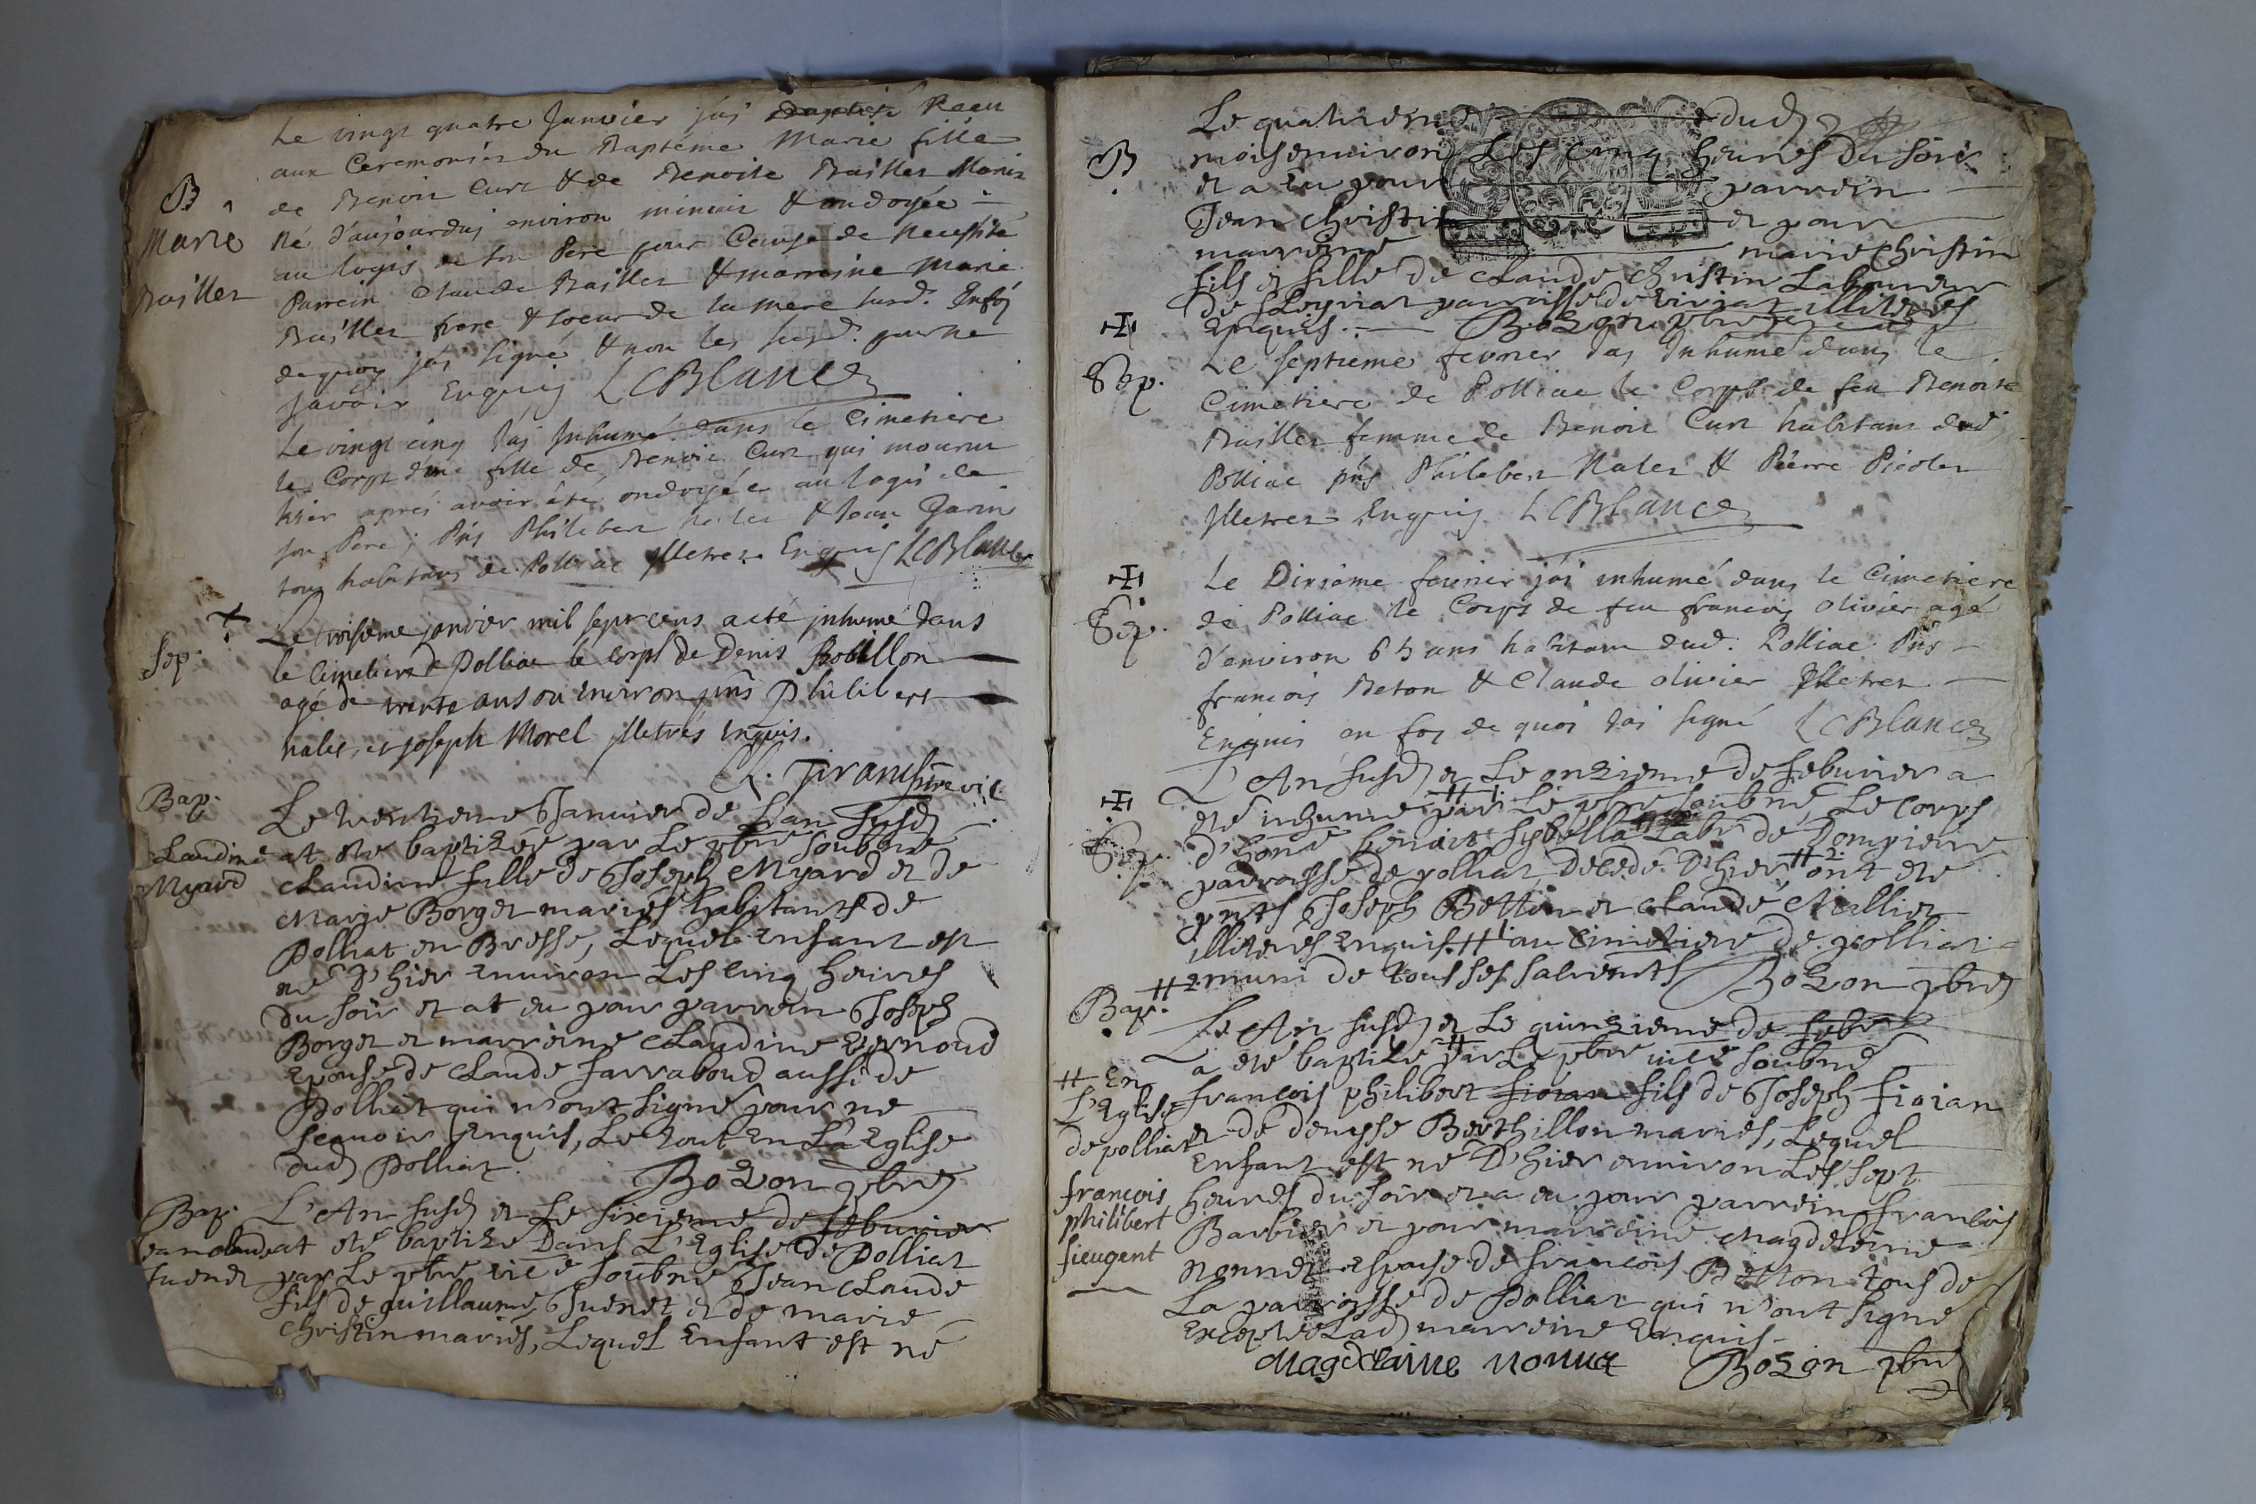 Le vingt quatre Janvier j'ai Baptisé Receu
aux Ceremonies du Baptéme Marie fille
de Benoit Curt & de Benoite Bailler Mariés
Né d'aujourduj environ minuit & ondoyée
au logis de son Pere pour Cause de Necessité
Parrein Claude Bailler & marreine Marie
Bailler frere & soeur de la mere susd. En foy
de quoy j'ay signé & non les susd. pour ne
savoir Enquis LCBlanc
B
Marie
Bailler
Le vingt cinq J'ai Inhumé dans le Cimetiere
le Corps d'une fille de Benoit Curt qui mourut
hier aprés avoir été ondoyée au logis de
son Pere; Pñs Philibert Nalet & Jean
tous habitans de Polliac Illetrez Enquis LCBlanc
Sep.
Le troisieme janvier mil sept cens a eté inhumé dans
le Cimetiere de Polliac le corps de Denis Bobillon
agé de trente ans ou environ pñs Philibert
nalet, et joseph Morel illetrés enquis.
vic.
Bap.
Claudine
Myard
Le trentieme Januier de L'an susd
at eté baptizée par Le pbre soubne
Claudine fille de Joseph Myard et de
Marie Borget mariés habitants de
Polliat en Bresse, Lequel Enfant est
né D'hier enuiron Les cinq heures
du soir et at eu pour parrein Joseph
Borget et marreine Claudine
Epouse de Claude farraboud aussi de
Polliat qui n'ont signé pour ne
scauoir Enquis, Le tout En La Eglise
dud Polliat. Bozon pbre
Bap.
jean claude
Tuenet
L'An susd et Le sixieme de feburier
at eté baptizé Dans L'Eglise de Polliat
par Le pbre vice soubné Jean Claude
fils de guillaume Tuenet et de marie
Christin mariés, Lequel Enfant est né
B
Le quatrieme dud
mois enuiron Les cinq heures du soir
et a eu pour parrein
Jean Christin et pour
marreine marie Christin
fils et fille de Claude Christin Laboureur
de parroisse de illiterés
Enquis. Bozon pbre
Sep.
Le septieme fevrier J'ai Inhumé dans le
Cimetiere de Polliac le Corps de feu Benoite
Bailler femme de Benoit Curt habitans dud
Polliac pñs Philibert Nalet & Pierre Picolet
Illetrez Enquis LCBlanc
Sep.
Le Dixiéme fevrier j'ai inhumé dans le Cimetiere
de Polliac le Corps de feu francois olivier agé
d'environ 65 ans habitant dud. Polliac Pñs
francois Beton & Claude olivier Illetrez
Enquis en foy de quoi J'ai signé LCBlanc
Sep.
L'An susd et Le onzieme de feburier a
eté inhumé par Le pbre soubné Le corps
d'honé benoist Labr de Dompierre
parroisse de polliat, Decedé D'hier ont eté
pnts Joseph Betton et Claude Mallier
illiterés enquis. # au cimetiere de polliat
# 2 muni de tous ses sacrements Bozon pbre
Bap.
Le An susd et Le quinzieme de febr
a eté baptizé # par Le pbre vice soubné
# En
L'Eglise
de polliat
francois
philibert
fieugent
francois philibert fioian fils de Joseph fioian
et de denysse Berthillon mariés, Lequel
Enfant est né D'hier enuiron Les sept
heures du soir et a eu pour parrein francois
Barbier et pour marreine Magdeleine
nonnet espouse de francois Betton tous de
La parroisse de Polliat qui n'ont signé
excepté Lad marreine Enquis.
Magdelaine nonnet Bozon pbre